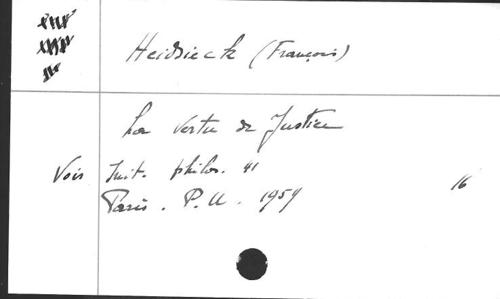 Heidsieck (François)
La Vertu de Justice
Vois Init. philos. 41
Paris. P. U. 1959
16